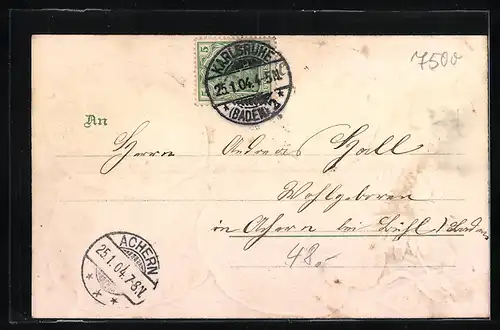 5
KARLSRUHE
25.1.04.4-5N.
(BADEN) 2
7500
An
Herrn Andreas Hall
Wohlgeboren
in Achern bei Bühl / Baden
48.-
ACHERN
25.1.04.7-8N.